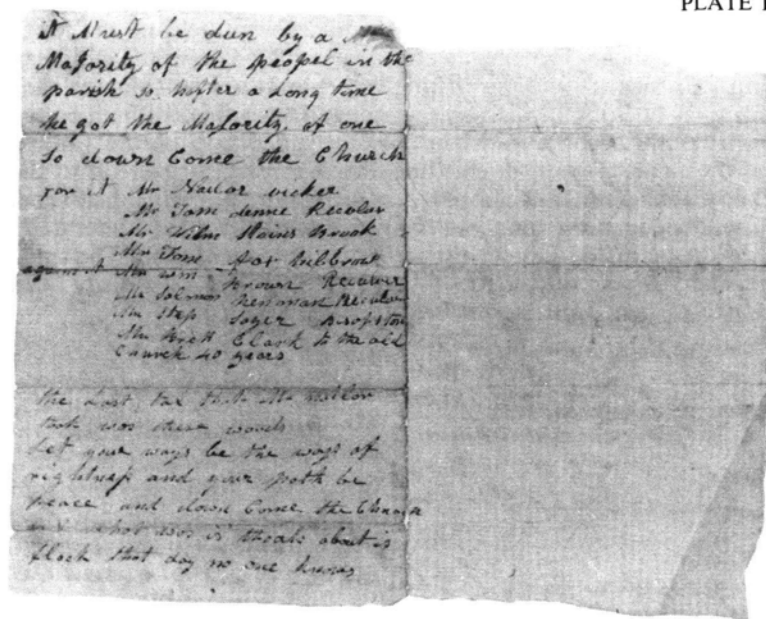 PLATE
it Must be dun by a
Majority of the peopel in the
parish so hafter a Long time
he got the Majority of one
so down Come the Church
for it Mr Nailor vicker
Mr Tom denne Reculver
Mr Wilm Stains Brook
Mr Tom hilbrow
against it Mr Wm Brown Reculver
Mr Solmon Reculver
Mr Step Sayer
Mr Brett Clark to the old
Church 40 years
the Last tax that Mr nailor
took was these words
let your ways be the ways of
rightness and your path be
peace and down Come the Church
and what was is thoats about is
flock that day no one knows